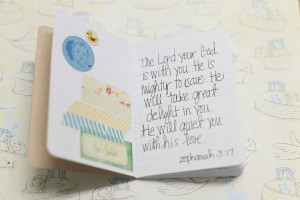 The Lord your God
is with you. He is
mighty to save. He
will take great
delight in you
He will quiet you
with his love.
zephaniah 3:17